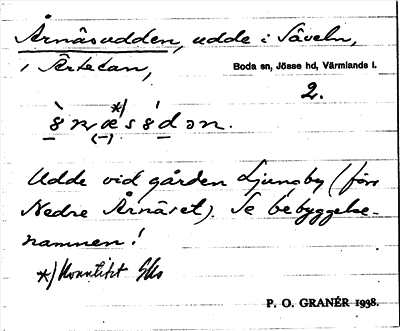 Årnäsudden, udde i Säveln,
i Ärtetan,
Boda sn, Jösse hd, Värmlands l.
2.
Udde vid gården Ljungby (förr
Nedre Årnäset). Se bebyggelse-
namnen!
P. O. GRANÉR 1938.